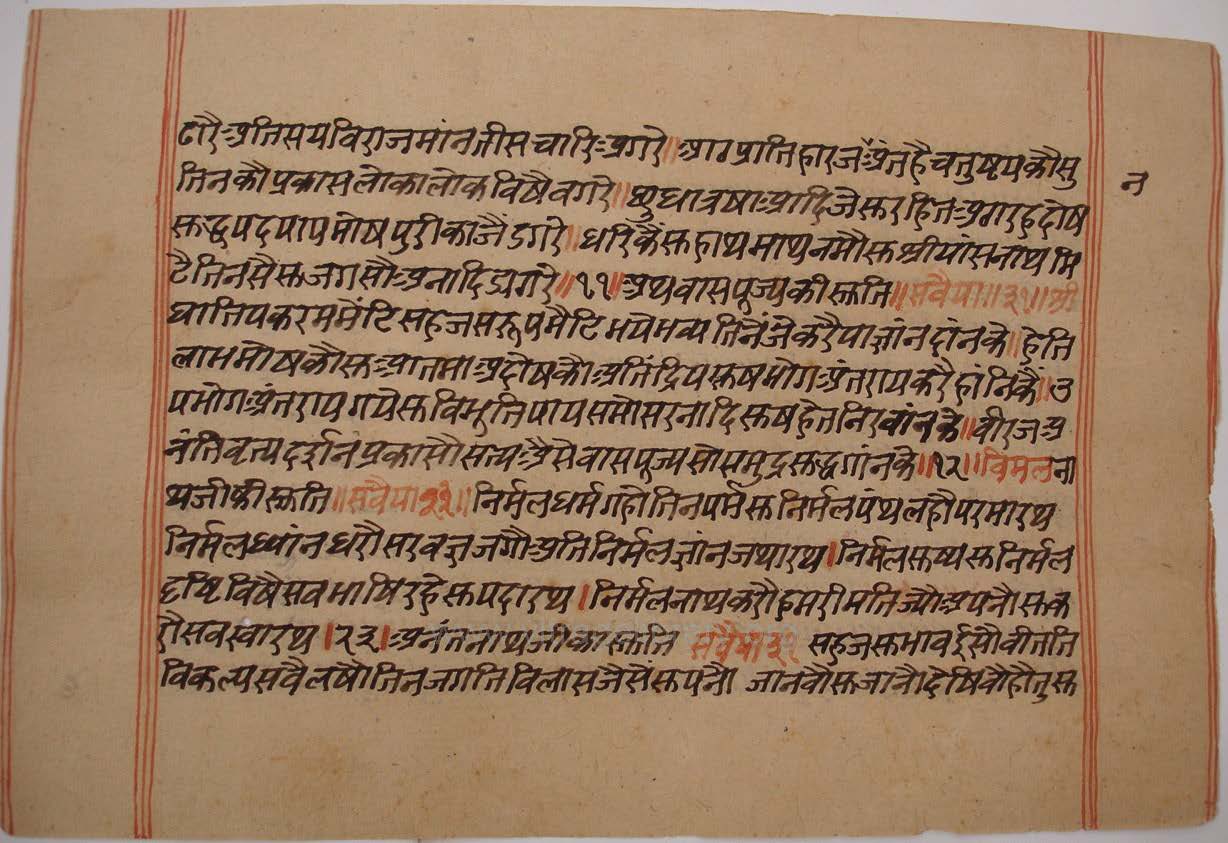 ठारैःप्रतिसयविराजमांनतीसचारिःप्रगरे॥ःप्राठप्रातिहारजःप्रंतहैचतुष्टयकौसु
जिनकौप्रकासलोकालोकविषैवगरे॥छुधात्रषाःप्रादिजेस्तरहितःप्रगरहदोष
स्तद्धपदपायमोषपुरीकाजैंडगरे॥धरिकैस्तहाथमाथनमौस्तश्रीयासनाथमि
टैजिनसैस्तजगसौःप्रनादिझगरे॥११॥ःप्रथवासपूज्यकीस्तति॥सवैया॥३१॥श्री
घातियकरममेंटिसहजसरूपमैंटिभयेभव्यतिनैंजेकरैयाज्ञांनदांनके॥हेति
लाभमोषकौस्तःप्रातमाःप्रदोषकौःप्रतिंद्रियस्तषभोगःप्रंतरायकरैहांनिकैं॥उ
पभोगःप्रंतरायगयेस्तविभूतिपायसमोसरनादिस्तषहेतनिरवांनके॥वीरजःप्र
नंतिवृत्यदर्शनप्रकासौसत्यःप्रैसेवासपूज्यसोसमुद्रस्तद्धगांनके॥१२॥विमलना
थजीकीस्तति॥सवैया२३॥निर्मलधर्मगहौजिनपर्मस्तनिर्मलपंथलहौपरमारथ
निर्मलध्यांनधरौसरवज्ञजगौःप्रतिनिर्मलज्ञांनजथारथ।निर्मलस्तष्यस्तनिर्मल
दृष्टिविषैसवभाषिरहेस्तपदारथ।निर्मलनाथकरौहमरीमतिज्यौःप्रपनौस्तक
रौसवस्वारथ।१३।ःप्रनंतनाथजीकीस्तति सवैया३१ सहजस्तभावईसौवीतति
विकल्पसवैलषौजिनजगतिविलासजैसेंस्तपनौ जानवौस्तजानैदेषिवौहौतुस्त
न